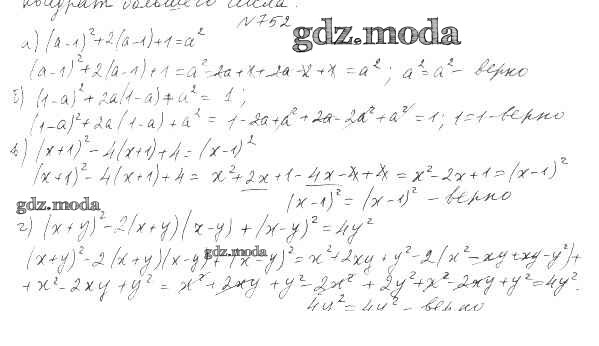 квадрат большего числа.
№752
gdz.moda
а) (a-1)²+2(a-1)+1=a²
(a-1)²+2(a-1)+1=a²-2a+1+2a-2+1=a²; a²=a² - верно
б) (1-a)²+2a(1-a)+a²=1;
(1-a)²+2a(1-a)+a²=1-2a+a²+2a-2a²+a²=1; 1=1-верно
в) (x+1)²-4(x+1)+4=(x-1)²
(x+1)²-4(x+1)+4=x²+2x+1-4x-4+4=x²-2x+1=(x-1)²
(x-1)²=(x-1)² - верно
gdz.moda
г) (x+y)²-2(x+y)(x-y)+(x-y)²=4y²
gdz.moda
(x+y)²-2(x+y)(x-y)+(x-y)²=x²+2xy+y²-2(x²-xy+xy-y²)+
+x²-2xy+y²=x²+2xy+y²-2x²+2y²+x²-2xy+y²=4y².
4y²=4y² - верно